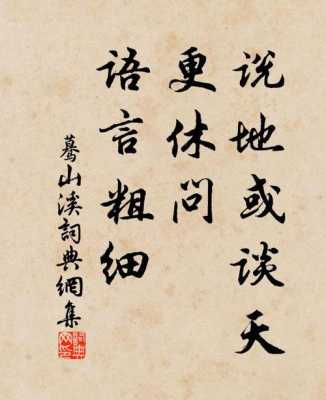 说地或谈天
更休问
语言粗细
蓦山溪詞典網集